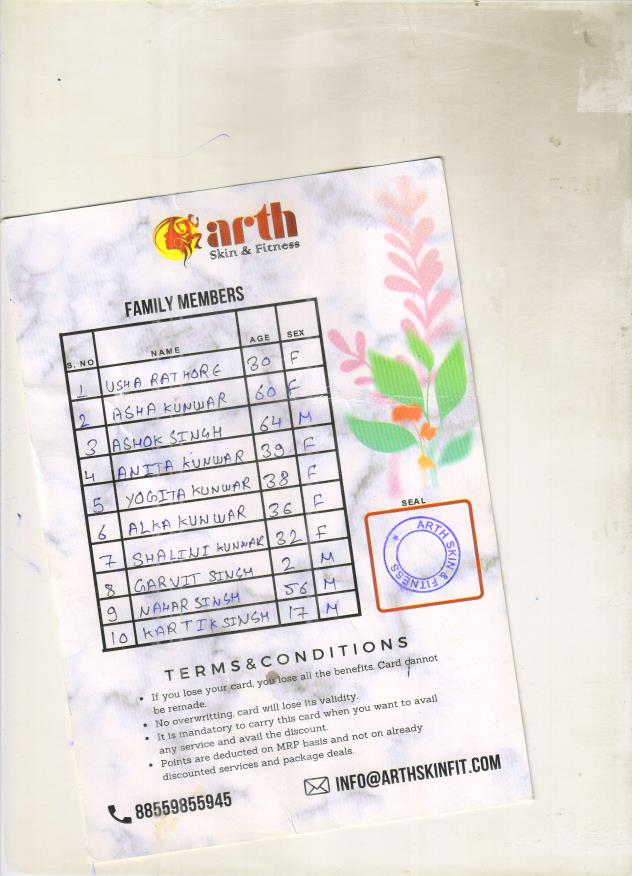 arth
Skin & Fitness
FAMILY MEMBERS
S. NO NAME AGE SEX
1 USHA RATHORE 30 F
2 ASHA KUNWAR 60 F
3 ASHOK SINGH 64 M
4 ANITA KUNWAR 39 F
5 YOGITA KUNWAR 38 F
6 ALKA KUNWAR 36 F
7 SHALINI KUNWAR 32 F
8 GARVIT SINGH 2 M
9 NAHAR SINGH 56 M
10 KARTIK SINGH 17 M
SEAL
ARTH SKIN & FITNESS
TERMS&CONDITIONS
• If you lose your card, you lose all the benefits. Card cannot
be remade.
• No overwritting, card will lose its validity.
• It is mandatory to carry this card when you want to avail
any service and avail the discount.
• Points are deducted on MRP basis and not on already
discounted services and package deals.
88559855945
INFO@ARTHSKINFIT.COM